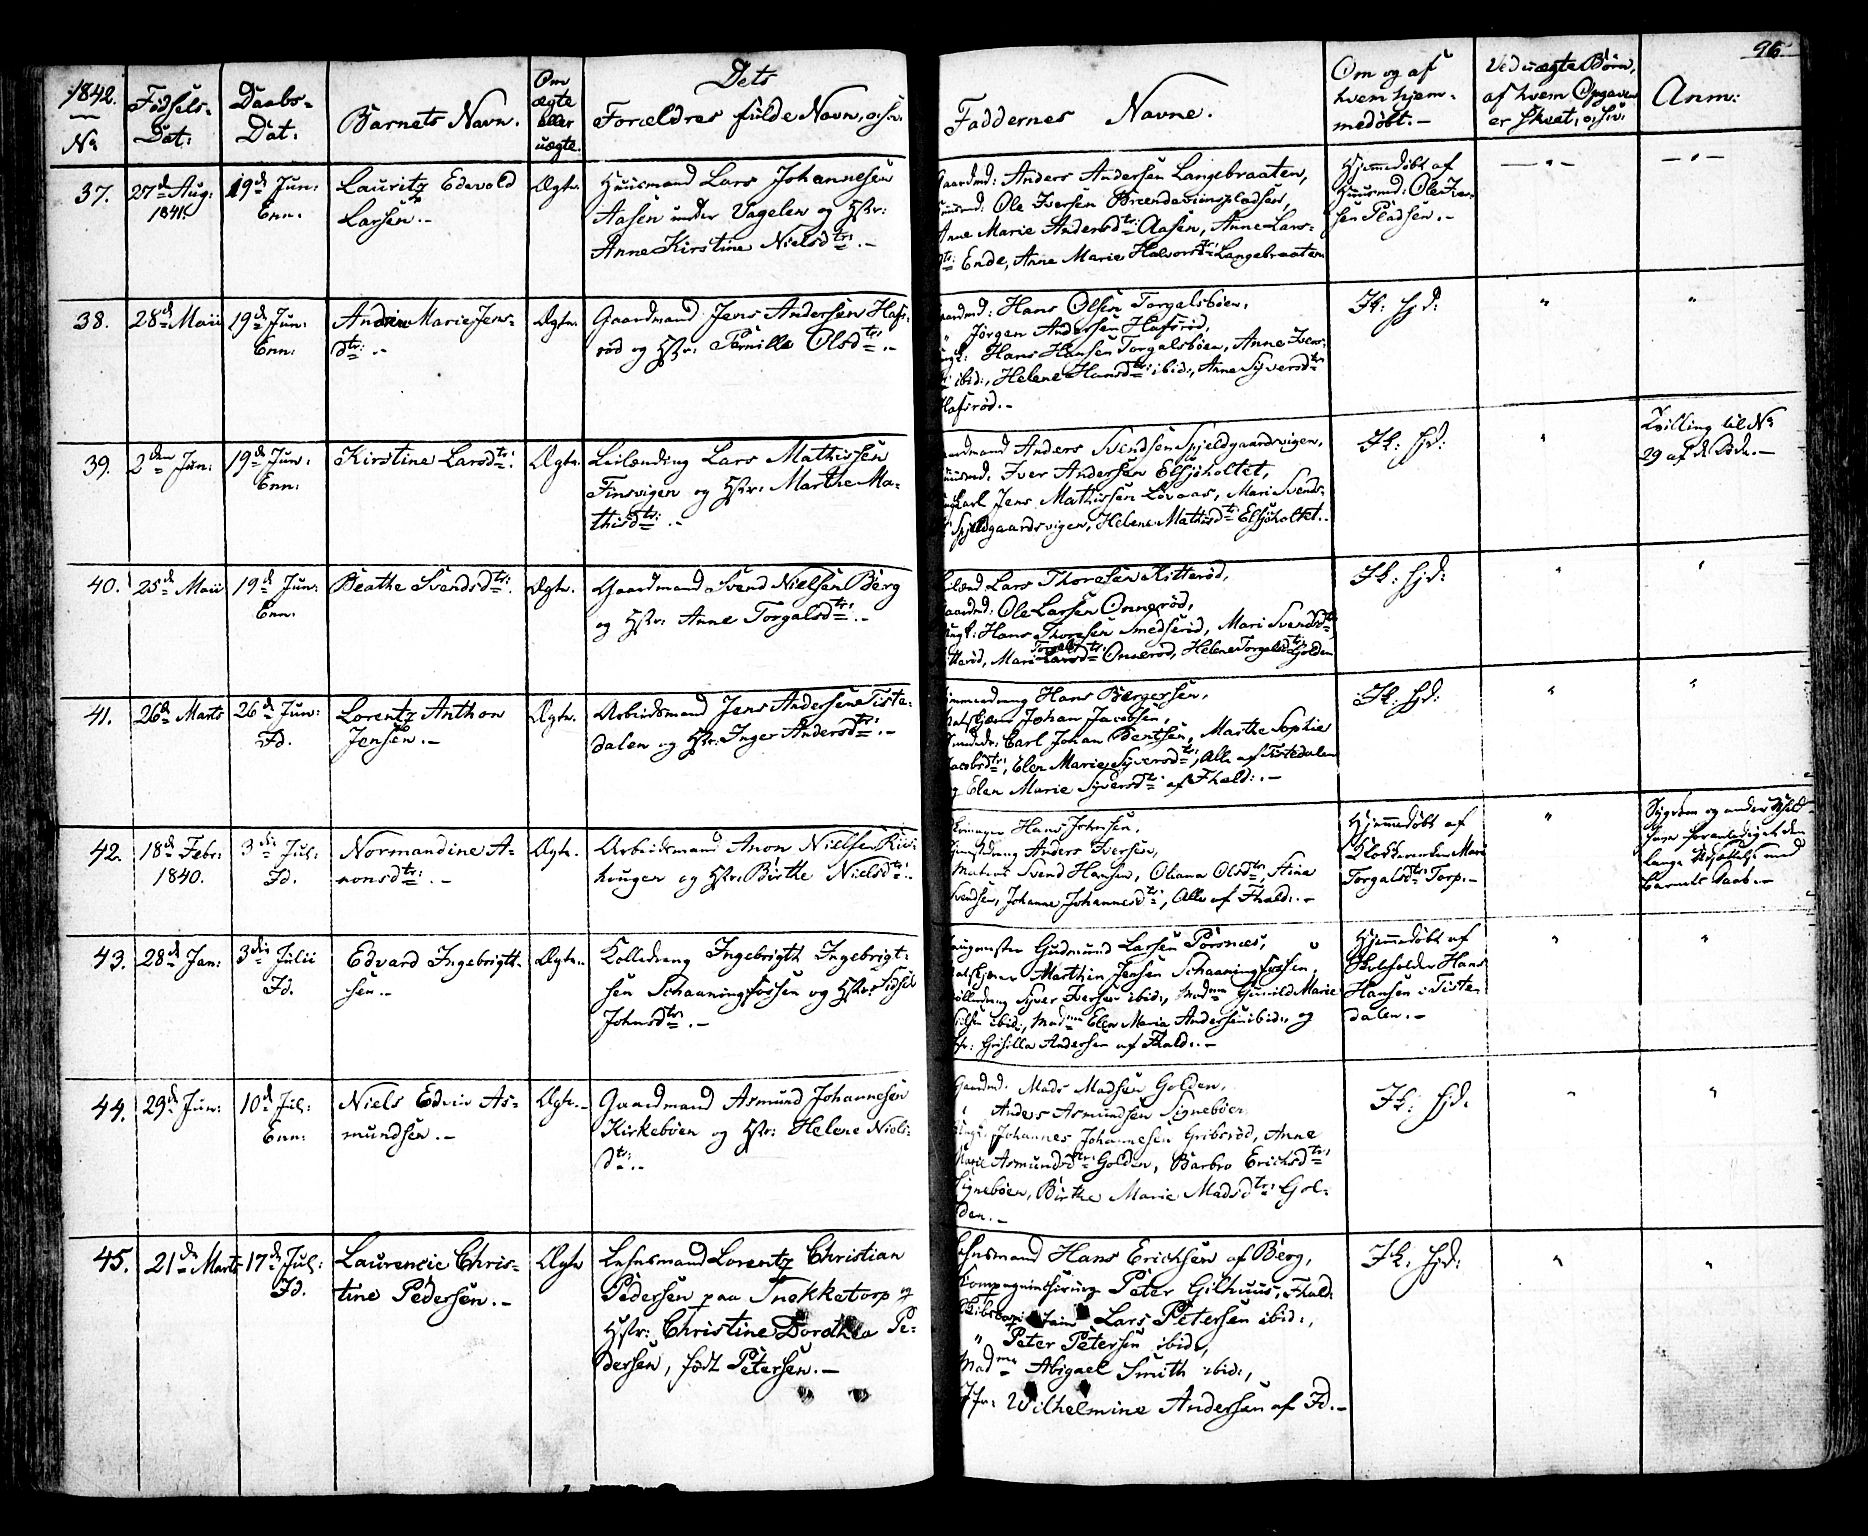 1842.
No
Fødsels-
Dat:
Daabs-
Dat:
Barnets Navn.
Om
ægte
eller
uægte.
Dets
Forældres fulde Navn, o: s: v:
Faddernes Navne.
Om og af
hvem hjem-
medøbt.-
Ved uægte Børn,
af hvem Opgaven
er skeet, o: s: v:
Anm:
96
37.
27de Aug:
1841.
19de Jun:
Enn:
Lauritz Edevold
Larsen.-
Ægte.
Huusmand Lars Johannesen
Aasen under Vagelen og Hstr:
Anne Kirstine Nielsdtr:.-
Gaardmd: Anders Andersen Langebraaten,
Huusmd: Ole Iversen
Anne Marie Andersdtr: Aasen, Anne Lars-
dtr: Ende, Anne Marie Halvorsdtr: Langebraaten
Hjemmedøbt af
Huusmd: Ole Iver-
sen Pladsen.-
— " —
— " —
38.
28de Maii
19de Jun:
Enn:
Andrine Marie Jens-
dtr:.-
Ægte.
Gaardmand Jens Andersen Hafs-
rød og Hstr: Pernille Olsdtr:.-
Gaardmd: Hans Olsen Torgalsbøen,
" Jørgen Andersen Hafsrød,
Ungk: Hans Hansen Torgalsbøen, Anne Ivers-
dtr: ibid:, Helene Hansdtr: ibid:, Anne Syversdtr:
Hafsrød.-
Ik: hjd:
"
"
39.
2den Jun:
19de Jun:
Enn:
Kirstine Larsdtr:.
Ægte.
Leilænding Lars Mathissen
Finsvigen og Hstr: Marthe Ma-
thisdtr:.-
Gaardmand Anders Svendsen Spjeldgaardsvigen,
Huusmd: Iver Andersen Elsjøholtet,
Ungkarl Jens Mathissen Løvaas, Mari Svends-
dtr: Spjeldgaardsvigen, Helene Mathisdtr: Elsjøholtet.-
Ik: hjd:
"
Tvilling til No
29 af de Døde.-
40.
25de Maii
19de Jun:
Enn:
Beathe Svendsdtr:.
Ægte.
Gaardmand Svend Nielsen Berg
og Hstr: Anne Torgalsdtr:.-
Leilænd Lars Thoresen Kitterød,
Gaardmd: Ole Larsen Onnerød,
Ungk: Hans Thoresen Smedserød, Mari Svendsdtr:
Kitterød, Mari Torgalsdtr: Onnerød, Helene Torgalsdtr: Golden
Ik: hjd:
"
"
41.
26de Marts
26de Jun:
Id.
Lorentz Anthon
Jensen.-
Ægte.
Arbeidsmand Jens Andersen Tiste-
dalen og Hstr: Inger Andersdtr:.-
Tømmerdreng Hans Børgersen,
Johan Jacobsen,
Carl Johan Bentsen, Marthe Sophie
Jacobsdtr:, Elen Marie Syversdtr:, Alle af Tistedalen
og Elen Marie Syversdtr: af Fhald:.-
Ik: hjd:
"
"
42.
18de Febr:
1840.
3die Jul:
Id.
Normandine A-
ronsdtr:.-
Ægte.
Arbeidsmand Aron Nielsen Riis-
houger og Hstr: Birthe Nielsdtr:.-
Hans Johnsen,
Anders Iversen,
Matros Svend Hansen, Oliana Olsdtr: Stina
Svendsen, Johanne Johannesdtr:, Alle af Fhald:.-
Hjemmedøbt af
Klokkerenken Mari
Torgalsdtr: Torp.-
"
Sygdom og andre Tilf
have foranlediget den
lange Udsættelse med
Barnets Daab.-
43.
28de Jan:
3die Julii
Id.
Edvard Ingebrigt-
sen.-
Ægte.
Kolledreng Ingebrigth Ingebrigt-
sen Schaaningsfossen og Hstr: Sidsel
Johnsdtr:.-
Gudmund Larsen Porsnæs,
Marthin Jensen Schaaningsfossen,
Mølledreng Syver Iversen ibid:, Madme Gunild Marie
Nilsen ibid:, Madme Elen Maria Andersen ibid:, og
Jfr: Grisilla Andersen af Fhald:.-
Hjemmedøbt af
Skoleholder Hans
Hansen i Tiste-
dalen.-
"
"
44.
29de Jun:
10de Jul:
Enn:
Niels Edvin As-
mundsen.-
Ægte.-
Gaardmand Asmund Johannesen
Kirkebøen og Hstr: Helene Niels-
dtr:.-
Gaardmd. Mads Madsen Golden,
" Anders Asmundsen Signebøen,
Ungk: Johannes Johannesen Gribsrød, Anne
Marie Asmundsdtr: Golden, Barbro Erichsdtr:
Signebøen, Birthe Marie Madsdtr: Gol-
den.-
Ik: hjd.
"
"
45.
21de Marts
17de Jul:
Id.
Laurencie Chris-
tine Pedersen.-
Ægte
Lehnsmand Lorentz Christian
Pedersen paa Snekketorp og
Hstr: Christine Dorothea Pe-
dersen, født Petersen.-
Lehnsmand Hans Erichsen af Berg,
Kompagniechirurg Peter Gilhuus, Fhald:
Skibscapitain Lars Petersen ibid:,
" Peter Petersen ibid:,
Madme Abigael Smith ibid:,
Jfr: Wilhelmine Andersen af Id.-
Ik: hjd:
"
"